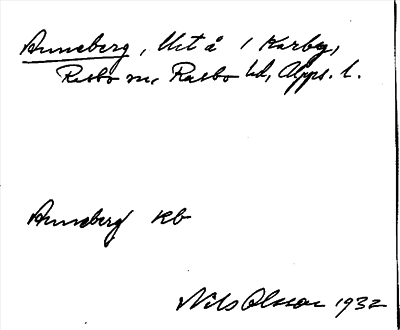 Anneberg, Utå 1 Karby,
Rasbo sn, Rasbo hd, Upps. l.
Anneberg Kb
Nils Olsson 1932